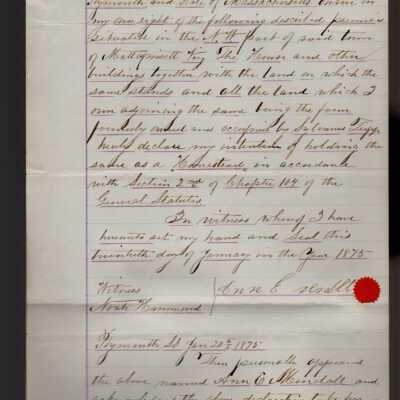 Plymouth and State of Massachusetts owner in
my own right of the following described premises
situated in the N.W. part of said town
of Mattapoisett Viz The House and other
buildings together with the land on which the
same stands and all the land which I
own adjoining the same being the farm
formerly owned and occupied by
hereby declare my intention of holding the
same as a Homestead, in accordance
with Section 2nd of Chapter 104 of the
General Statutes
In witness whereof I have
hereunto set my hand and seal this
twentieth day of January in the Year 1875
Witness
Noah Hammond
Ann E
Plymouth SS Jan 20th 1875
Then personally appeared
the above named Ann E Mendall and